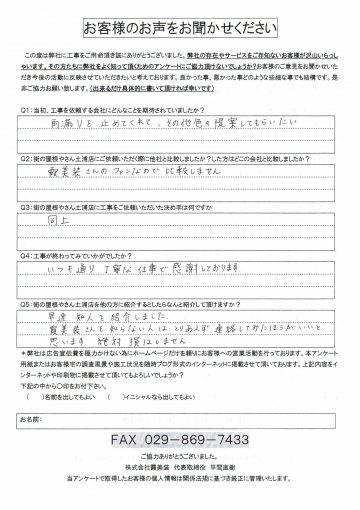 お客様のお声をお聞かせください
この度は弊社に工事をご用命頂き誠にありがとうございました。弊社の存在やサービスをご存知ないお客様が沢山いらっしゃいます。その方たちに弊社をよく知って頂くためのアンケートにご協力頂けないでしょうか？お客様のご意見をお聞かせいただき今後の活動に反映させていただきたいと考えております。良かった事、悪かった事どのような些細な事でも結構です。是非ご協力お願い致します。（出来るだけ具体的に書いて頂ければ幸いです）
Q1：当初、工事を依頼する会社にどんなことを期待されていましたか？
雨漏りを止めてくれて、その他色々提案してもらいたい
Q2：街の屋根やさん土浦店にご依頼いただく際に他社と比較しましたか？した方はどこの会社と比較しましたか？
霞美装さんのファンなので比較しません
Q3：街の屋根やさん土浦店に工事をご依頼いただいた決め手は何ですか
同上
Q4：工事が終わってみていかがでしたか？
いつも通り丁寧な仕事で感謝しております
Q5：街の屋根やさん土浦店を他の方に紹介するとしたらなんと紹介して頂けますか？
早速知人を紹介しました。
霞美装さんを知らない人はとりあえず連絡してみたほうがいいと
思います。絶対損はしません。
＊弊社は広告宣伝費を極力かけない為にホームページだけを頼りにお客様への営業活動を行っております。本アンケート用紙またはお客様宅の調査風景や施工状況を随時ブログ形式のインターネットに掲載させて頂いております。上記内容をインターネットや印刷物に掲載させて頂いてもよろしいでしょうか？
下記の中から〇印をお付下さい。
（　　）名前を出してもよい　（　　）イニシャルなら出してもよい
お名前：
FAX 029-869-7433
ご協力ありがとうございました。
株式会社霞美装　代表取締役　平間直樹
当アンケートで取得したお客様の個人情報は関係法規に基づき厳正に管理いたします。